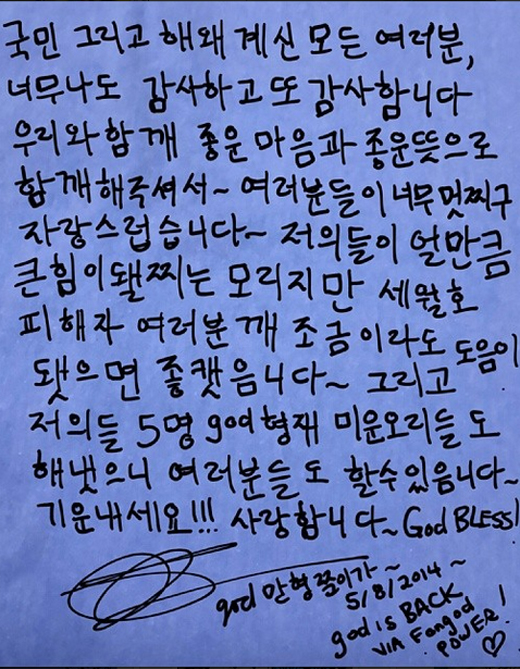 국민 그리고 해왜 계신 모든 여러분,
너무나도 감사하고 또 감사합니다
우리와 함깨 좋운 마음과 좋운뜻으로
함깨해주셔서~ 여러분들이 너무 멋찌구
자랑스럽습니다~ 저의들이 얼만큼
큰힘이 됄찌는 모리지만 세월호
피해자 여러분깨 조금이라도 도음이
됏으면 좋캣음니다~ 그리고
저의들 5명 god형재 미운오리들도
해냇으니 여러분들도 할수있음니다~
기운내세요!!! 사랑함니다~ God BLESS!
god 만형쭌이가~
5/8/2014~
god is BACK
VIA Fangod
POWER!